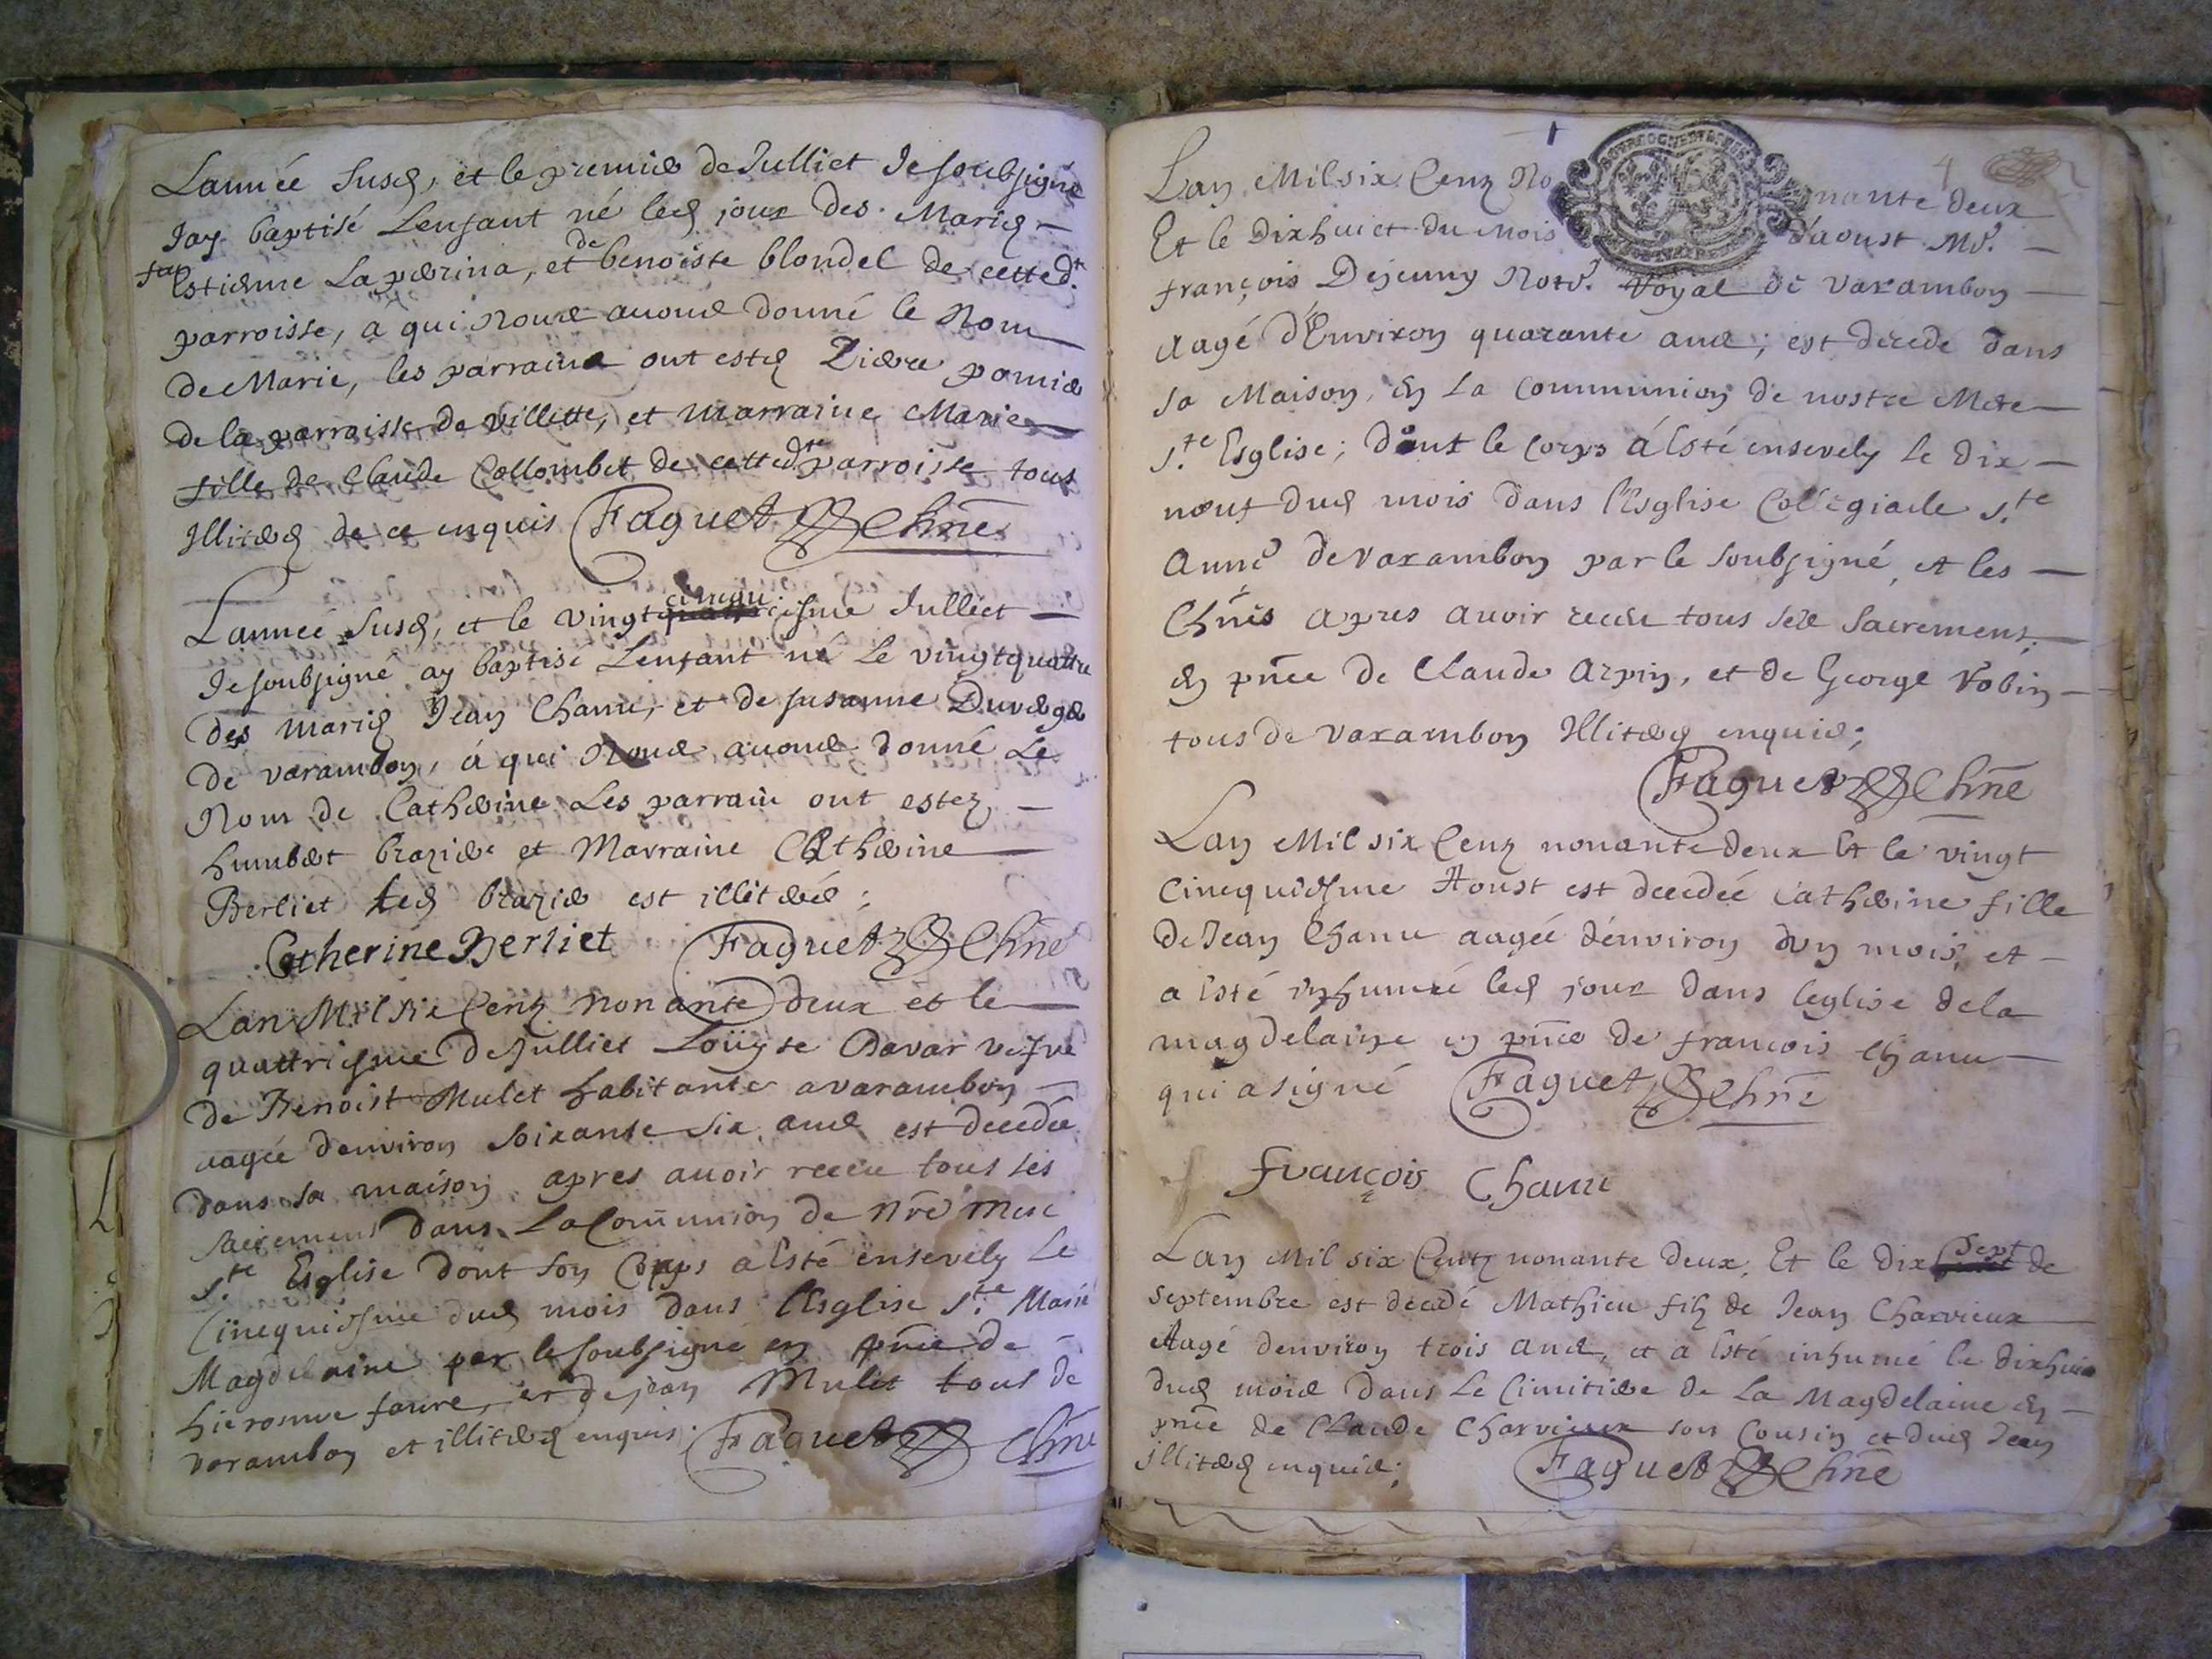 Lannée susd, et le premier de Julliet Je soubsigné
Jay baptisé Lenfant né led jour des Mariés
Estienne Laperina, et de benoiste blondel de cetted.te
parroisse, a qui Nous auons donné le Nom
de Marie, les parrains ont estes Pierre pomier
de la parroisse de Villette, et marraine Marie
fille de Claude Collombet de cettedte parroisse tous
Illiteres de ce enquis Faguet Chne
Lannée susd, et le vingt cinquiesme Julliet
Je soubsigné ay baptisé Lenfant né Le vingtquattre
des mariés Jean Chanu, et de susanne Duverger
de varambon, á qui Nous auons donné Le
Nom de Catherine Les parrain ont estez
humbert brazier et Marraine Catherine
Berliet Led brazier est illiteré ;
Catherine Berliet Faguet Chne
Lan Mil Six Centz nonante deux et le
quattriesme de Julliet Loüyse Davar vefve
de Benoist Mulet habitante a varambon
aagée denviron soixante six ans est decedée
dans sa maison apres auoir receu tous ses
sacremens dans La Communion de nre Mere
s.te Esglise dont son Corps a Esté ensevely Le
Cinequiesme dud mois dans lEsglise s.te Marie
Magdelaine par le soubsigné en pnce de
hierosme faure, et de jean Mulet tous de
varambon et illiteres enquis. Faguet Chne
4
Lan Mil six Centz No nonante deux
Et le dixhuict du mois d'aoust Me.
françois Dejeuny Notre. Royal de varambon
aagé dEnviron quarante ans ; est decedé dans
sa Maison, En La communion de nostre Mere
s.te Esglise ; dont le corps á Esté ensevely le dix
neuf dud mois dans l'Esglise Collegialle s.te
Anne de varambon par le soubsigné, et les
Chnes apres auoir receu tous ses sacremens,
En pnce de Claude Arpin, et de George Robin
tous de varambon Illiteres enquis ;
Faguet Chne
Lan Mil six Centz nonante deux Et le vingt
Cinequiesme Aoust est decedée Catherine fille
de Jean Chanu aagée d'environ dun mois, et
a Esté Inhumée led jour dans leglise de la
magdelaine en pnce de francois Chanu
qui a signé Faguet Chne
François Chanu
Lan Mil six Centz nonante deux, Et le dix sept de
septembre est decedé Mathieu filz de Jean Charvieux
Aagé denviron trois ans, et a Esté inhumé le dixhuict
dud mois dans Le Cimitiere de La Magdelaine En
pnce de Claude Charvieux son Cousin et dud Jean
illiteres enquis ; Faguet Chne